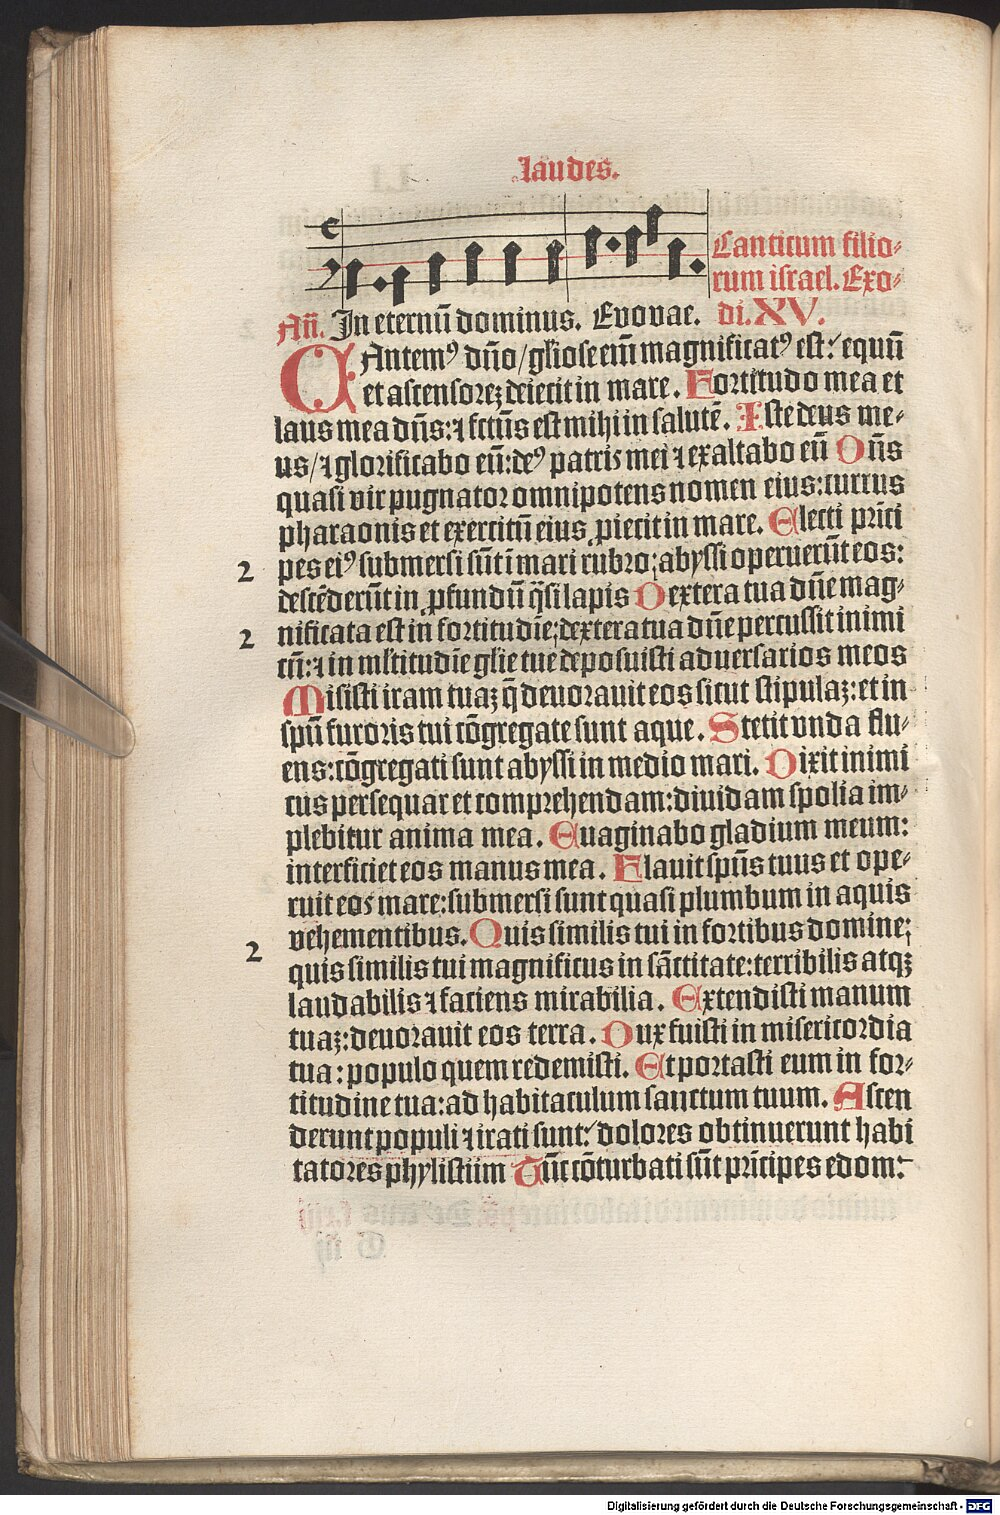 laudes.
Canticum filio⸗
rum israel. Exo⸗
Añ. In eternū dominus. Evovae. di. XV.
CAntemꝰ dño/ gl̄iose eñi magnificatꝰ est: equū
et ascensoreꝫ deiecit in mare. Fortitudo mea et
laus mea dñs: ⁊ fctūs est mihi in salutē. Iste deus me⸗
us/ ⁊ glorificabo eū: deꝰ patris mei ⁊ exaltabo eū Oñs
quasi vir pugnator omnipotens nomen eius: currus
pharaonis et exercitū eius ꝓiecit in mare. Electi prīci
2 pes eiꝰ submersi sūt ī mari rubro; abyssi operuerūt eos:
descēderūt in ꝓfundū q̄si lapis Dextera tua dñe mag⸗
2 nificata est in fortitudīe; dextera tua dñe percussit inimi
cū: ⁊ in ml̄titudīe gl̄ie tue deposuisti adversarios meos
Misisti iram tuaꝫ q̄ devoravit eos sicut stipulaꝫ: et in
spū furoris tui cōgregate sunt aque. Stetit vnda flu⸗
ens: cōgregati sunt abyssi in medio mari. Dixit inimi
cus persequar et comprehendam: dividam spolia im⸗
plebitur anima mea. Evaginabo gladium meum:
interficiet eos manus mea. Flavit spūs tuus et ope⸗
ruit eos mare: submersi sunt quasi plumbum in aquis
vehementibus. Quis similis tui in fortibus domine;
2 quis similis tui magnificus in sāctitate: terribilis atqꝫ
laudabilis ⁊ faciens mirabilia. Extendisti manum
tuaꝫ: devoravit eos terra. Dux fuisti in misericordia
tua: populo quem redemisti. Et portasti eum in for⸗
titudine tua: ad habitaculum sanctum tuum. Ascen
derunt populi ⁊ irati sunt: dolores obtinuerunt habi
tatores phylistiim Tūc cōturbati sūt prīcipes edom:
Digitalisierung gefördert durch die Deutsche Forschungsgemeinschaft - DFG